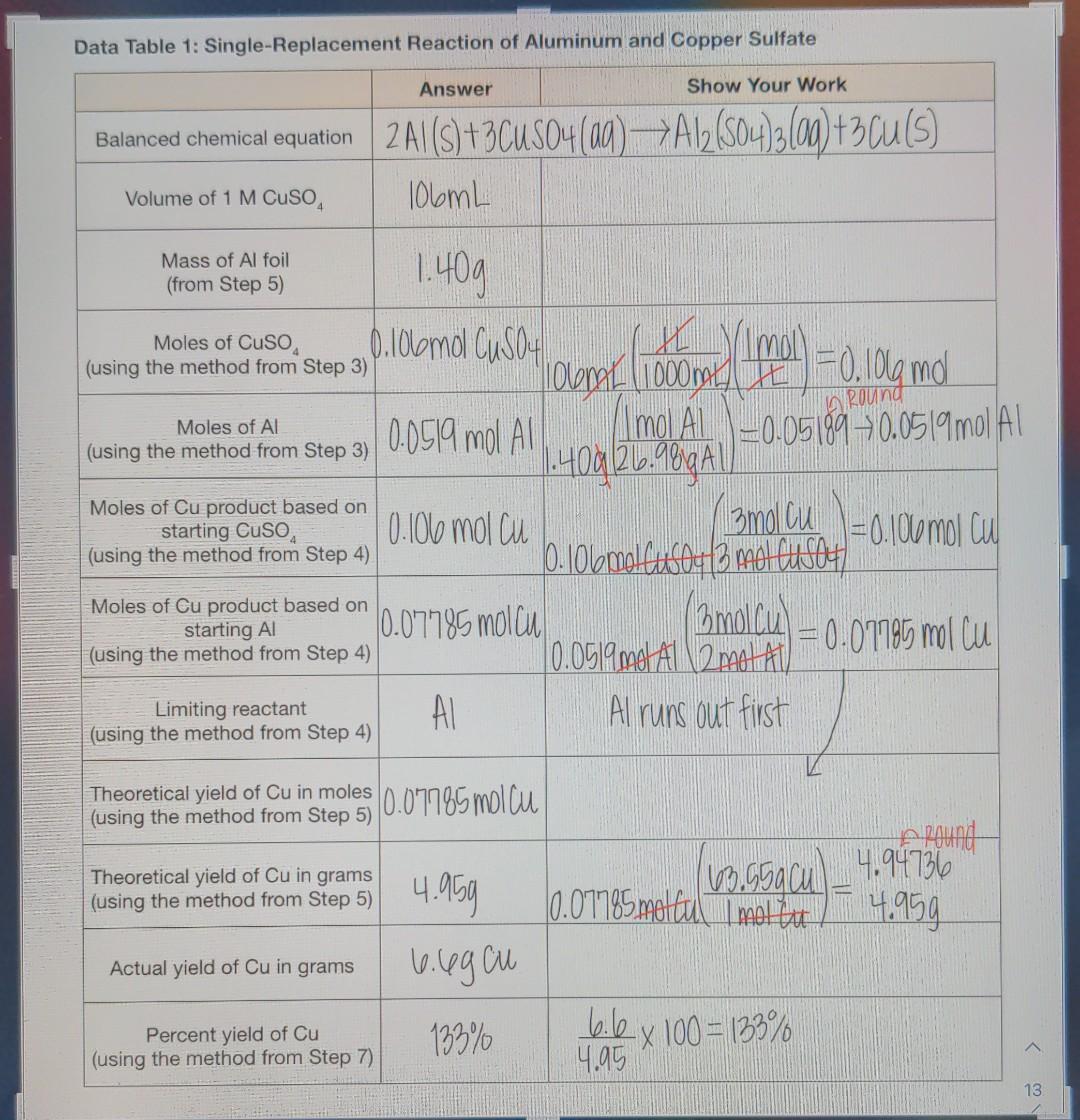 Data Table 1: Single-Replacement Reaction of Aluminum and Copper Sulfate
Answer
Show Your Work
Balanced chemical equation
2Al(s)+3CuSO4(aq)→Al2(SO4)3(aq)+3Cu(s)
Volume of 1 M CuSO4
106mL
Mass of Al foil
(from Step 5)
1.40g
Moles of CuSO4
(using the method from Step 3)
0.106mol CuSO4
106mL (1L/1000mL)(1mol/1L)=0.106 mol
Moles of Al
(using the method from Step 3)
0.0519 mol Al
ROUND
1.40g (1mol Al/26.98gAl)=0.05189→0.0519mol Al
Moles of Cu product based on
starting CuSO4
(using the method from Step 4)
0.106 mol Cu
0.106molCuSO4 (3mol Cu/3 molCuSO4)=0.106mol Cu
Moles of Cu product based on
starting Al
(using the method from Step 4)
0.07785 molCu
0.0519molAl (3molCu/2molAl)=0.07785 mol Cu
Limiting reactant
(using the method from Step 4)
Al
Al runs out first
Theoretical yield of Cu in moles
(using the method from Step 5)
0.07785molCu
Theoretical yield of Cu in grams
(using the method from Step 5)
4.95g
ROUND
0.07785molCu (63.55gCu/1molCu)= 4.94736
4.95g
Actual yield of Cu in grams
6.6g Cu
Percent yield of Cu
(using the method from Step 7)
133%
6.6/4.95 x 100=133%
13